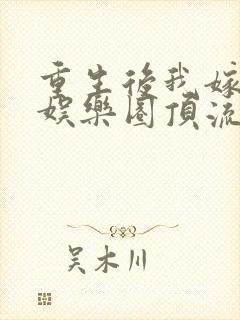 重生後我嫁
娛樂圈頂流
吴木川